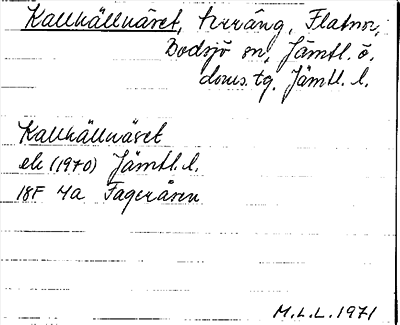 Kallhällnäset, terräng, Flatnor,
Bodsjö sn, Jämtl. ö.
doms. tg. Jämtl. l.
Kallhällnäset
ek (1970) Jämtl. l.
18F 4a Fageråsen
M.L.L. 1971